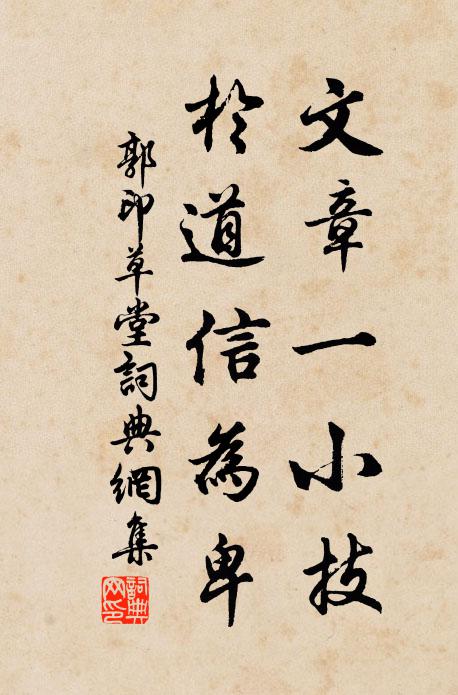 文章一小技
於道信為卑
郭印草堂詞典網集
詞典網印